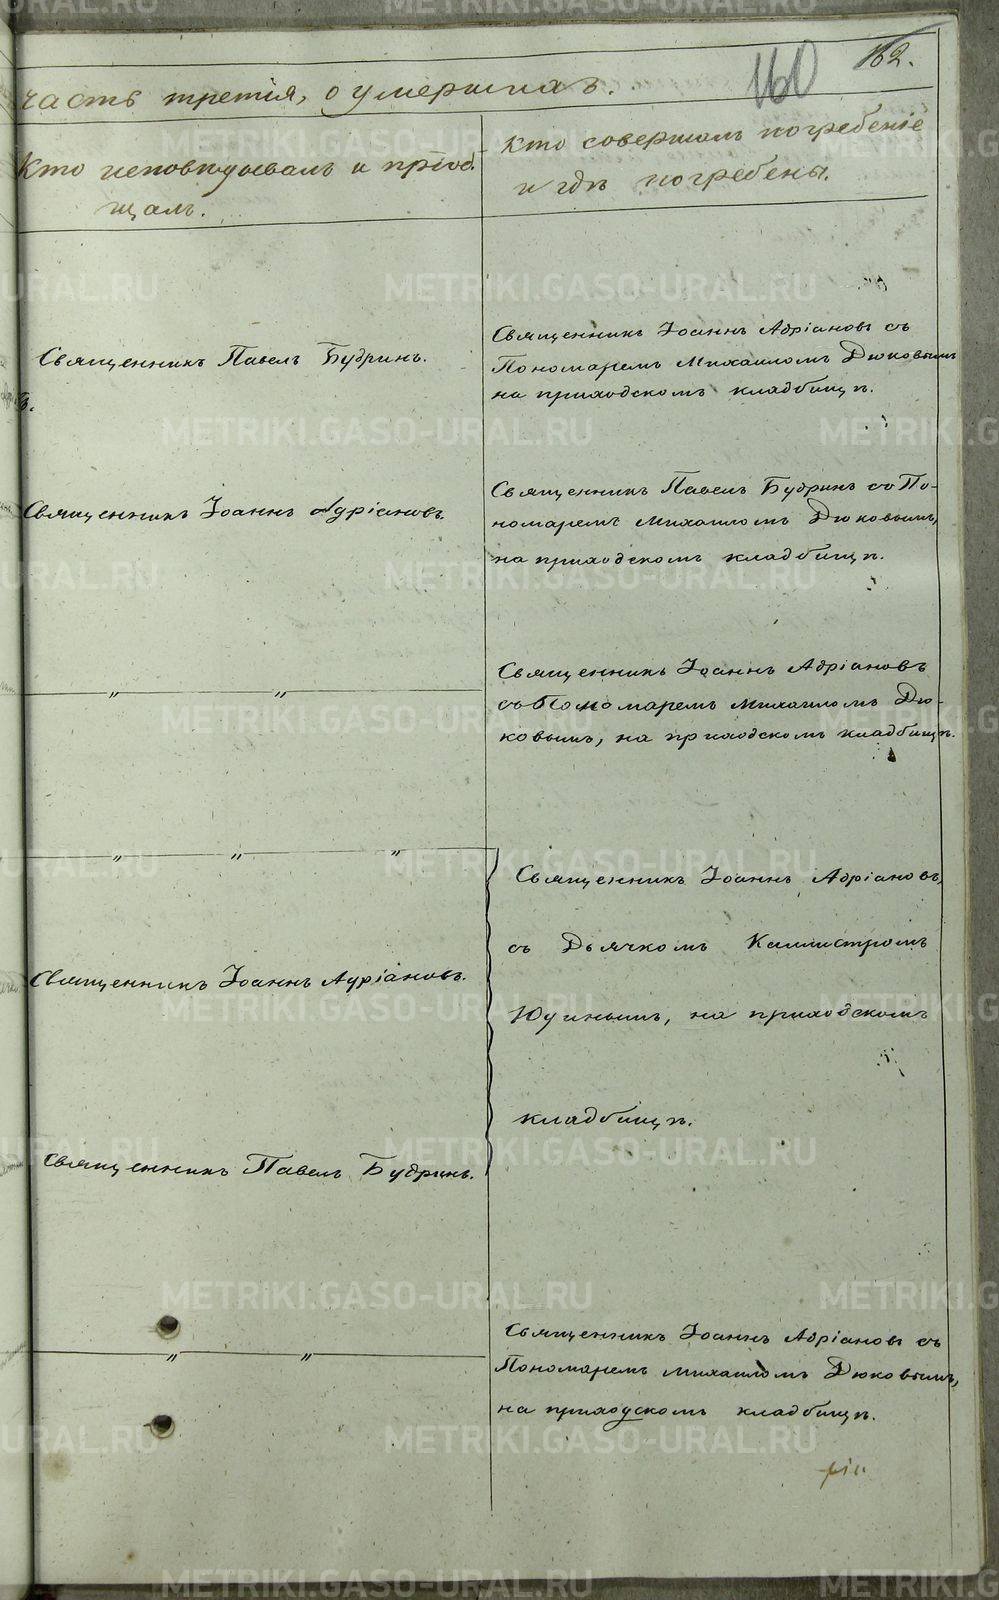 160
162.
часть третія, о умершихъ.
Кто исповѣдывалъ и пріоб-
щалъ.
Кто совершалъ погребеніе
и гдѣ погребены.
Священникъ Павелъ Будринъ.
Священникъ Іоаннъ Адріановъ съ
Пономаремъ Михаиломъ Дюковымъ
на приходскомъ кладбищѣ.
Священникъ Іоаннъ Адріановъ.
Священникъ Павелъ Будринъ съ По-
номаремъ Михаиломъ Дюковымъ,
на приходскомъ кладбищѣ.
" "
Священникъ Іоаннъ Адріановъ
съ Пономаремъ Михаиломъ Дю-
ковымъ, на приходскомъ кладбищѣ.
" " "
Священникъ Іоаннъ Адріановъ,
съ Дьячкомъ Каллистромъ
Юшнымъ, на приходскомъ
кладбищѣ.
Священникъ Іоаннъ Адріановъ.
Священникъ Павелъ Будринъ.
" "
Священникъ Іоаннъ Адріановъ съ
Пономаремъ Михаиломъ Дюковымъ,
на приходскомъ кладбищѣ.
METRIKI.GASO-URAL.RU